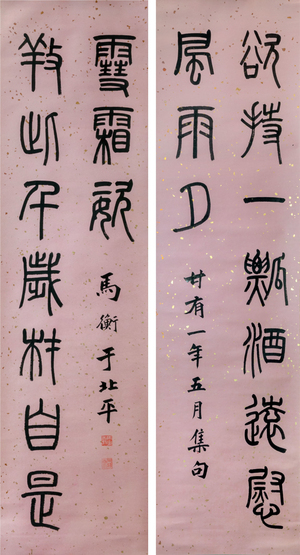 欲持一瓢酒遠慰
風雨夕
廿有一年五月集句
養此千歲材自是
雪霜姿
馬衡于北平